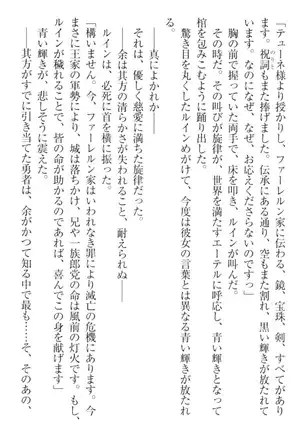 「テューネ様より授かりし、ファーレルン家に伝わる、鏡、宝珠、剣、すべてがあり
ます。祝詞もまた捧げました。伝承にある通り、空もまた割れ、黒い輝きが放たれて
います。なのになぜ、なぜ、お応えくださらないのですっ」
胸の前で握っていた両手で、床を叩き、ルインが叫んだ。
すると、その叫びが旋律が、世界を満たすエーテルに呼応し、青い輝きとなって
棺を包みこむように踊り出した。
驚き目を丸くしたルインめがけて、今度は彼女の言葉とは異なる青い輝きが放たれ
た。
――真によかれか――
それは、優しく慈愛に満ちた旋律だった。
――余は其方の清らかさが失われること、耐えられぬ――
ルインは、必死に首を横に振った。
「構いません。今、ファーレルン家はいわれなき罪により滅亡の危機にあります。今
まさに王家の軍勢により、城は落ちかけ、兄や一族郎党の命は風前の灯火です。もし、
ルインが穢れることで、皆の命が助かるのであれば、喜んでこの身を献げます」
青い輝きが、悲しそうに震えた。
――其方がすでに引き当てた勇者は、余がかつて知る中で最も……そ、そのあの、